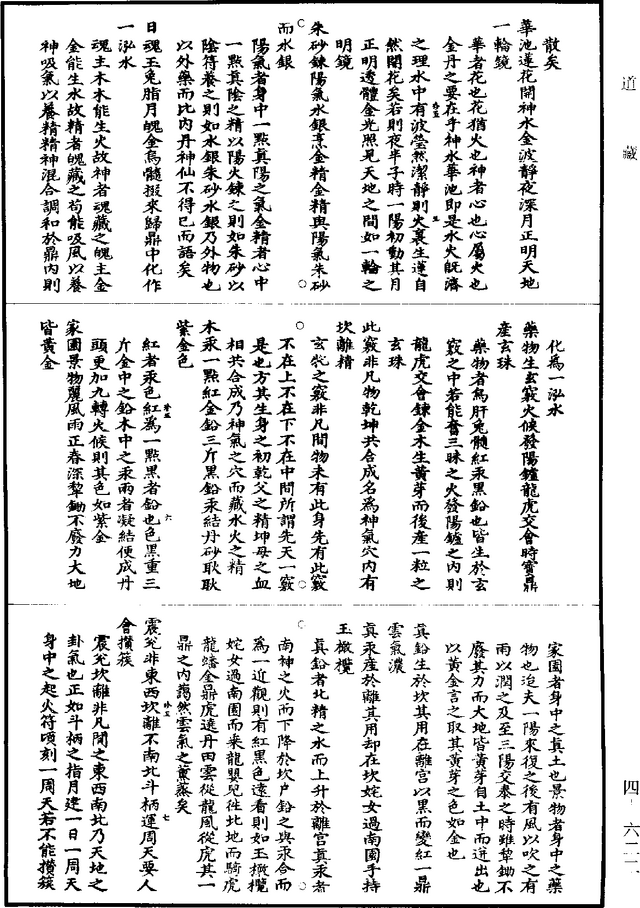 道藏
散矣
華池蓮花開神水金波靜夜深月正明天地
一輪鏡
華者花也花猶火也神者心也心屬火也
金丹之要在乎神水華池即是水火既濟
之理水中有波瑩然潔靜則火裏生蓮自
然開花矣若則夜半子時一陽初動其月
正明透體金光照見天地之間如一輪之
明鏡
朱砂鍊陽氣水銀烹金精金精與陽氣朱砂
而水銀
陽氣者身中一點真陽之氣金精者心中
一點真陰之精以陽火鍊之則如朱砂以
陰符養之則如水銀朱砂水銀乃外物也
以外藥而比內丹神仙不得已而語矣
日魂玉兔脂月魄金烏髓掇來歸鼎中化作
一泓水
魂主木木能生火故神者魂藏之魄主金
金能生水故精者魄藏之苟能吸風以養
神吸氣以養精精神混合調和於鼎內則
化為一泓水
藥物生玄竅火候發陽鑪龍虎交會時寶鼎
產玄珠
藥物者烏肝兔髓紅汞黑鉛也皆生於玄
竅之中若能奮三昧之火發陽鑪之內則
龍虎交會鍊金木生黃芽而後產一粒之
玄珠
此竅非凡物乾坤共合成名為神氣穴內有
坎離精
玄牝之竅非凡間物未有此身先有此竅
不在上不在下不在中間所謂先天一竅
是也方其生身之初乾父之精坤母之血
相共合成乃神氣之穴而藏水火之精
木汞一點紅金鉛三斤黑鉛汞結丹砂耿耿
紫金色
紅者汞色紅為一點黑者鉛也色黑重三
斤金中之鉛木中之汞兩者凝結便成丹
頭更加九轉火候則其色如紫金
家園景物麗風雨正春深犂鋤不廢力大地
皆黃金
家園者身中之真土也景物者身中之藥
物也迨夫一陽來復之後有風以吹之有
雨以潤之及至三陽交泰之時雖犂鋤不
廢其力而大地皆黃芽自土中而迸出也
以黃金言之取其黃芽之色如金也
真鉛生於坎其用在離宮以黑而變紅一鼎
雲氣濃
真汞產於離其用却在坎姹女過南園手持
玉橄欖
真鉛者北精之水而上升於離宮真汞者
南神之火而下降於坎戶鉛之與汞合而
為一近觀則有紅黑色遠看則如玉橄欖
姹女過南園而乘龍嬰兒往北地而騎虎
龍蟠金鼎虎遶丹田雲從龍風從虎其一
鼎之內藹然雲氣之薰蒸矣
震兌非東西坎離不南北斗柄運周天要人
會攢簇
震兌坎離非凡間之東西南北乃天地之
卦氣也正如斗柄之指月建一日一周天
身中之起火符頃刻一周天若不能攢簇